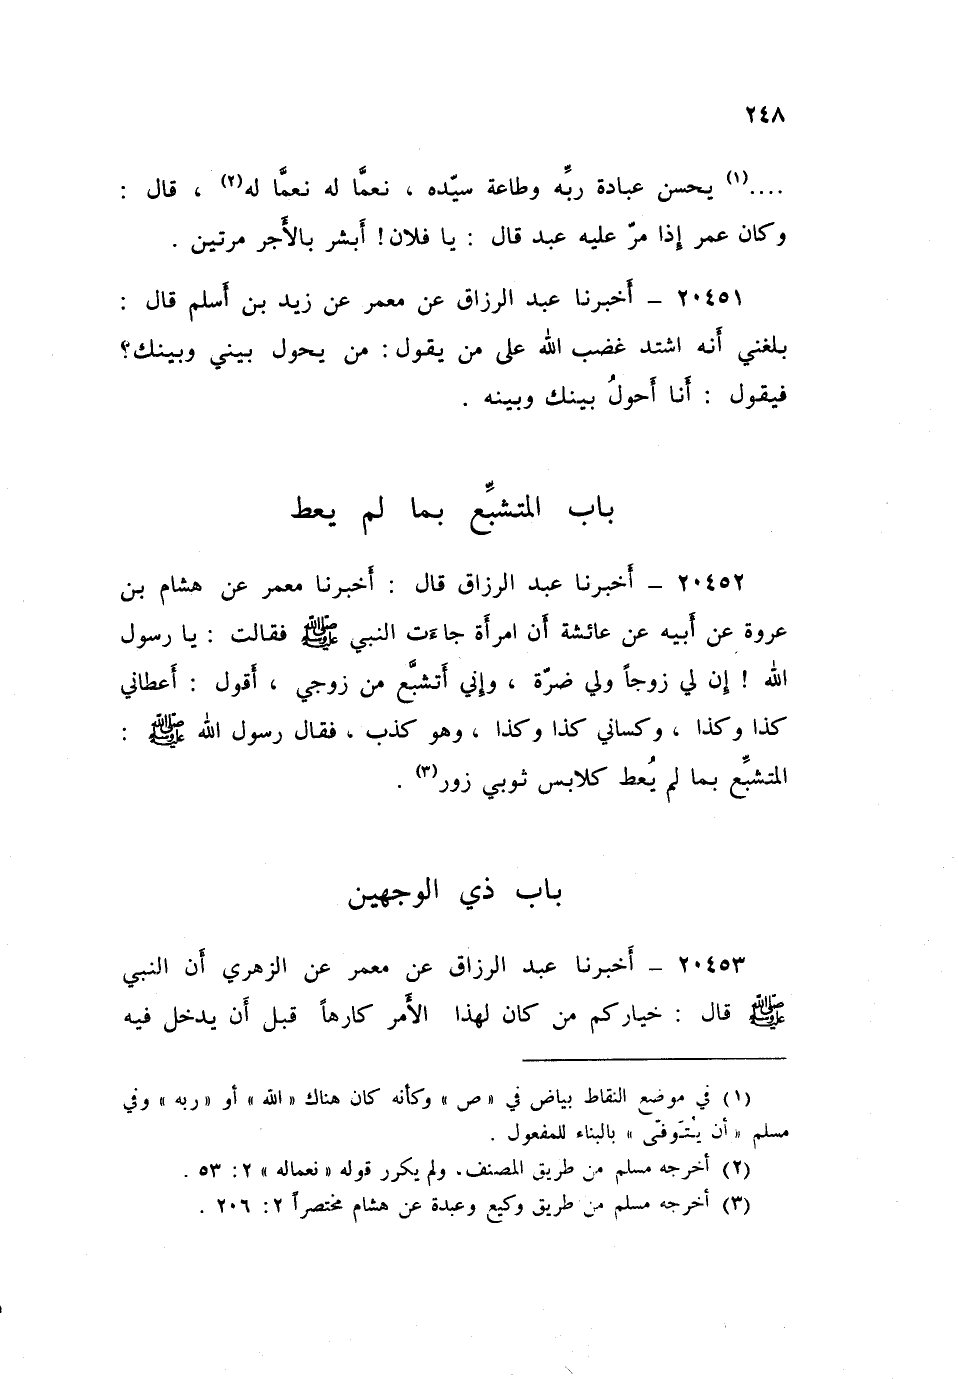 ٢٤٨
....(١) يحسن عبادة ربِّه وطاعة سيّده ، نعمَّا له نعمَّا له(٢) ، قال :
وكان عمر إذا مرّ عليه عبد قال : يا فلان! أَبشر بالأَجر مرتين .
٢٠٤٥١ – أَخبرنا عبد الرزاق عن معمر عن زيد بن أَسلم قال :
بلغني أَنه اشتد غضب الله على من يقول : من يحول بيني وبينك؟
فيقول : أَنا أَحولُ بينك وبينه .
باب المتشبِّع بما لم يعط
٢٠٤٥٢ – أَخبرنا عبد الرزاق قال : أَخبرنا معمر عن هشام بن
عروة عن أَبيه عن عائشة أَن امرأَة جاءَت النبي ﷺ فقالت : يا رسول
الله ! إِن لي زوجاً ولي ضرّة ، وإِني أَتشبَّع من زوجي ، أَقول : أَعطاني
كذا وكذا ، وكساني كذا وكذا ، وهو كذب ، فقال رسول الله ﷺ :
المتشبِّع بما لم يُعط كلابس ثوبي زور(٣) .
باب ذي الوجهين
٢٠٤٥٣ – أَخبرنا عبد الرزاق عن معمر عن الزهري أَن النبي
ﷺ قال : خياركم من كان لهذا الأَمر كارهاً قبل أَن يدخل فيه
(١) في موضع النقاط بياض في « ص » وكأنه كان هناك « الله » أو « ربه » وفي
مسلم « أن يُتَوفّى » بالبناء للمفعول .
(٢) أخرجه مسلم من طريق المصنف. ولم يكرر قوله « نعماله » ٢: ٥٣ .
(٣) أخرجه مسلم من طريق وكيع وعبدة عن هشام مختصراً ٢: ٢٠٦ .